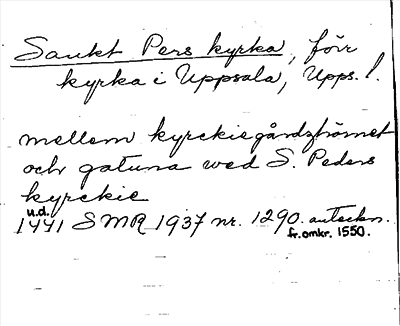 Sankt Pers kyrka, förr
kyrka i Uppsala, Upps. l.
mellem kyrckiegårdzhörnet
och gatuna wed S. Peders
kyrckie
u.d.
1441 SMR 1937 nr. 1290. anteckn.
fr. omkr. 1550.